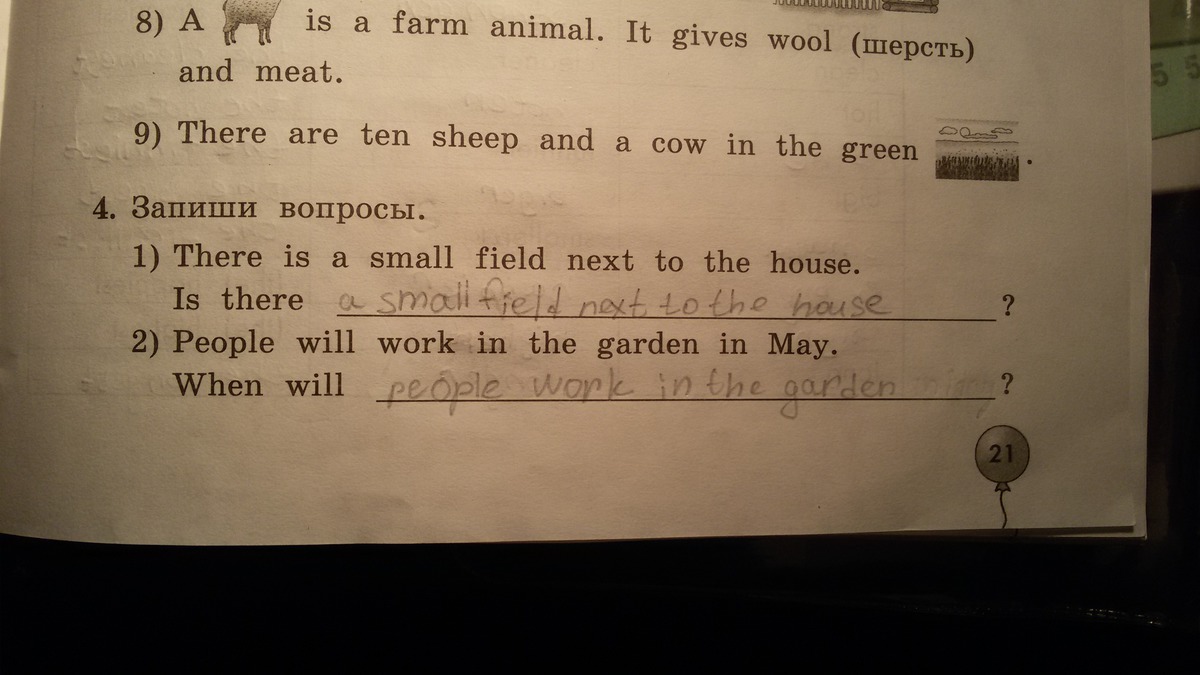 8) A is a farm animal. It gives wool (шерсть)
and meat.
9) There are ten sheep and a cow in the green .
4. Запиши вопросы.
1) There is a small field next to the house.
Is there a small field next to the house ?
2) People will work in the garden in May.
When will people work in the garden ?
21
5 5